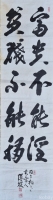 富貴不能淫
貧賤不能移